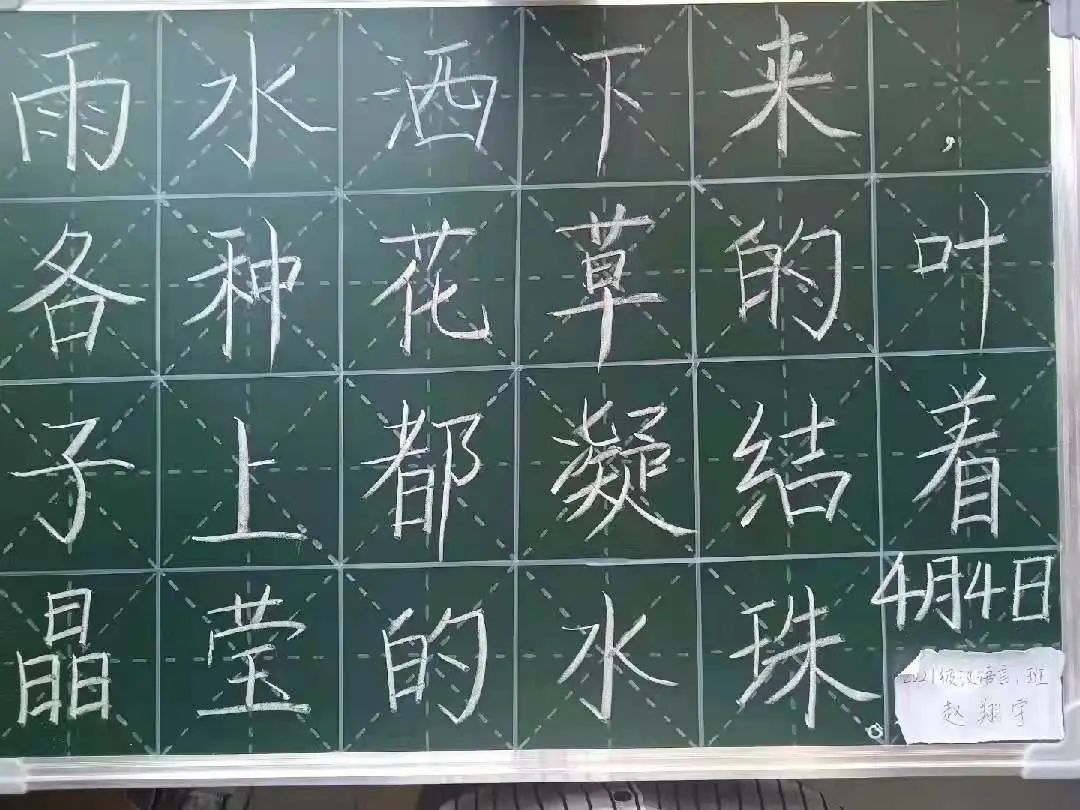 雨水洒下来，
各种花草的叶
子上都凝结着
晶莹的水珠。
4月4日
2021级汉语言1班
赵翔宇